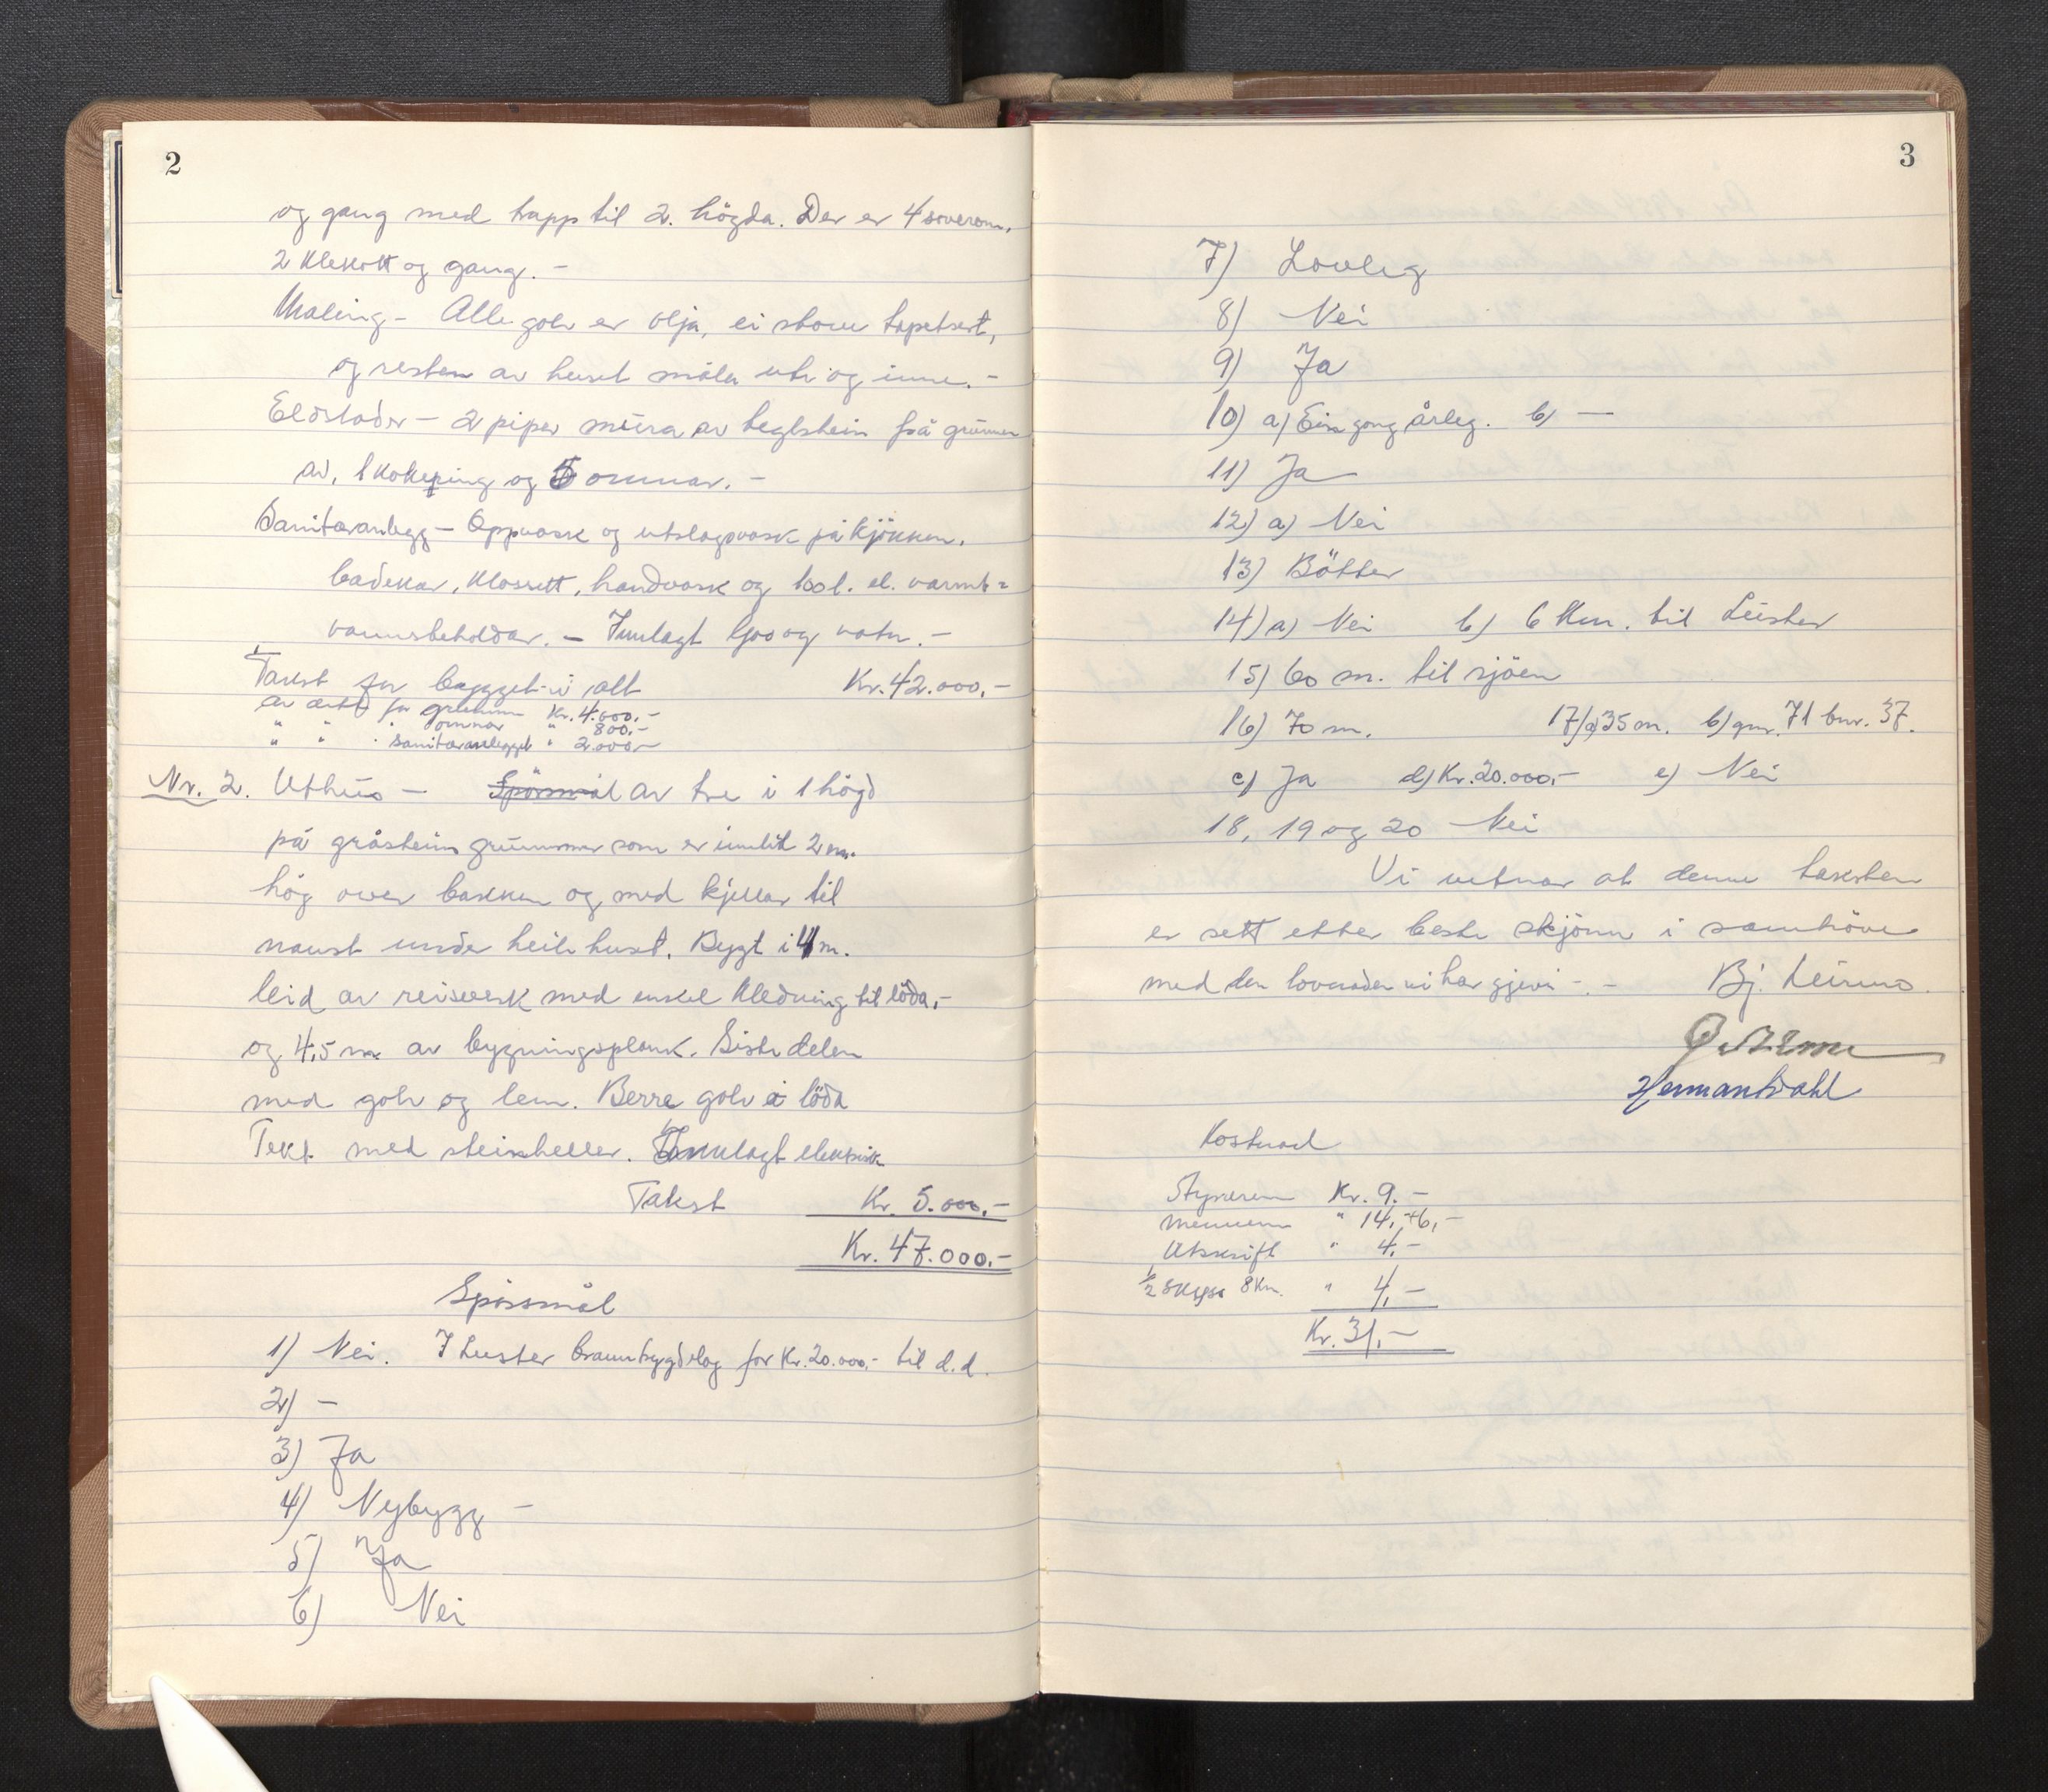 2
og gang med trapp til 2. högda. Der er 4 soverom,
2 klekott og gang. -
Maling - Alle golv er olja, ei stove tapetsert,
og resten av huset måla ute og inne. -
Eldstader - 2 piper mura av teglstein frå grunnen
av, 1 kokeping og 5 omnar. -
Sanitæranlegg - Oppvask og utslagsvask på kjökken,
badekar, klosett, handvask og 100 l. el. varmt=
vannsbeholdar. - Innlagt ljos og vatn. -
Takst for bygget i alt Kr. 42.000,-
av dette for grunnen Kr. 4.000,-
" " " omnar " 800,-
" " " Sanitæranlegget " 2000,-
Nr. 2. Uthus - Spörsmål av tre i 1 högd
på gråsteins grunnmur som er innlit 2 m.
hög over bakken og med kjellar til
naust under heile huset. Bygt i 4 m.
leid av reisverk med enkel kledning til löda,-
og 4,5 m av bygningsplank. Siste delen
med golv og lem. Berre golv i löda
Tekt med steinheller. Innlagt elektrisk
Takst Kr. 5.000,-
Kr. 47.000,-
Spörsmål
1) Nei. I Luster brannbygdelag for Kr. 20.000,- til d.d.
2) -
3) Ja
4) Nybygg -
5) Ja
6) Nei
3
7) Lovleg
8) Nei
9) Ja
10) a) Ein gong årleg. b) -
11) Ja
12) a) Nei
13) Bötter
14) a) Nei b) 6 km. til Luster
15) 60 m. til sjöen
16) 70 m. 17/a) 35 m. b) gnr. 71 bnr. 37.
c) Ja d) Kr. 20.000,- e) Nei
18, 19 og 20 Nei
Vi vitnar at denne taksten
er sett etter beste skjönn i samhöve
med den lovnaden vi har gjevi -. - Bj. Leirmo.
Herman Dahl
Kostnad
Styraren Kr. 9. -
mennene " 14,-+6,-
Utskrift " 4,-
1/2 skyss 8 Km. " 4,-
Kr. 31,-